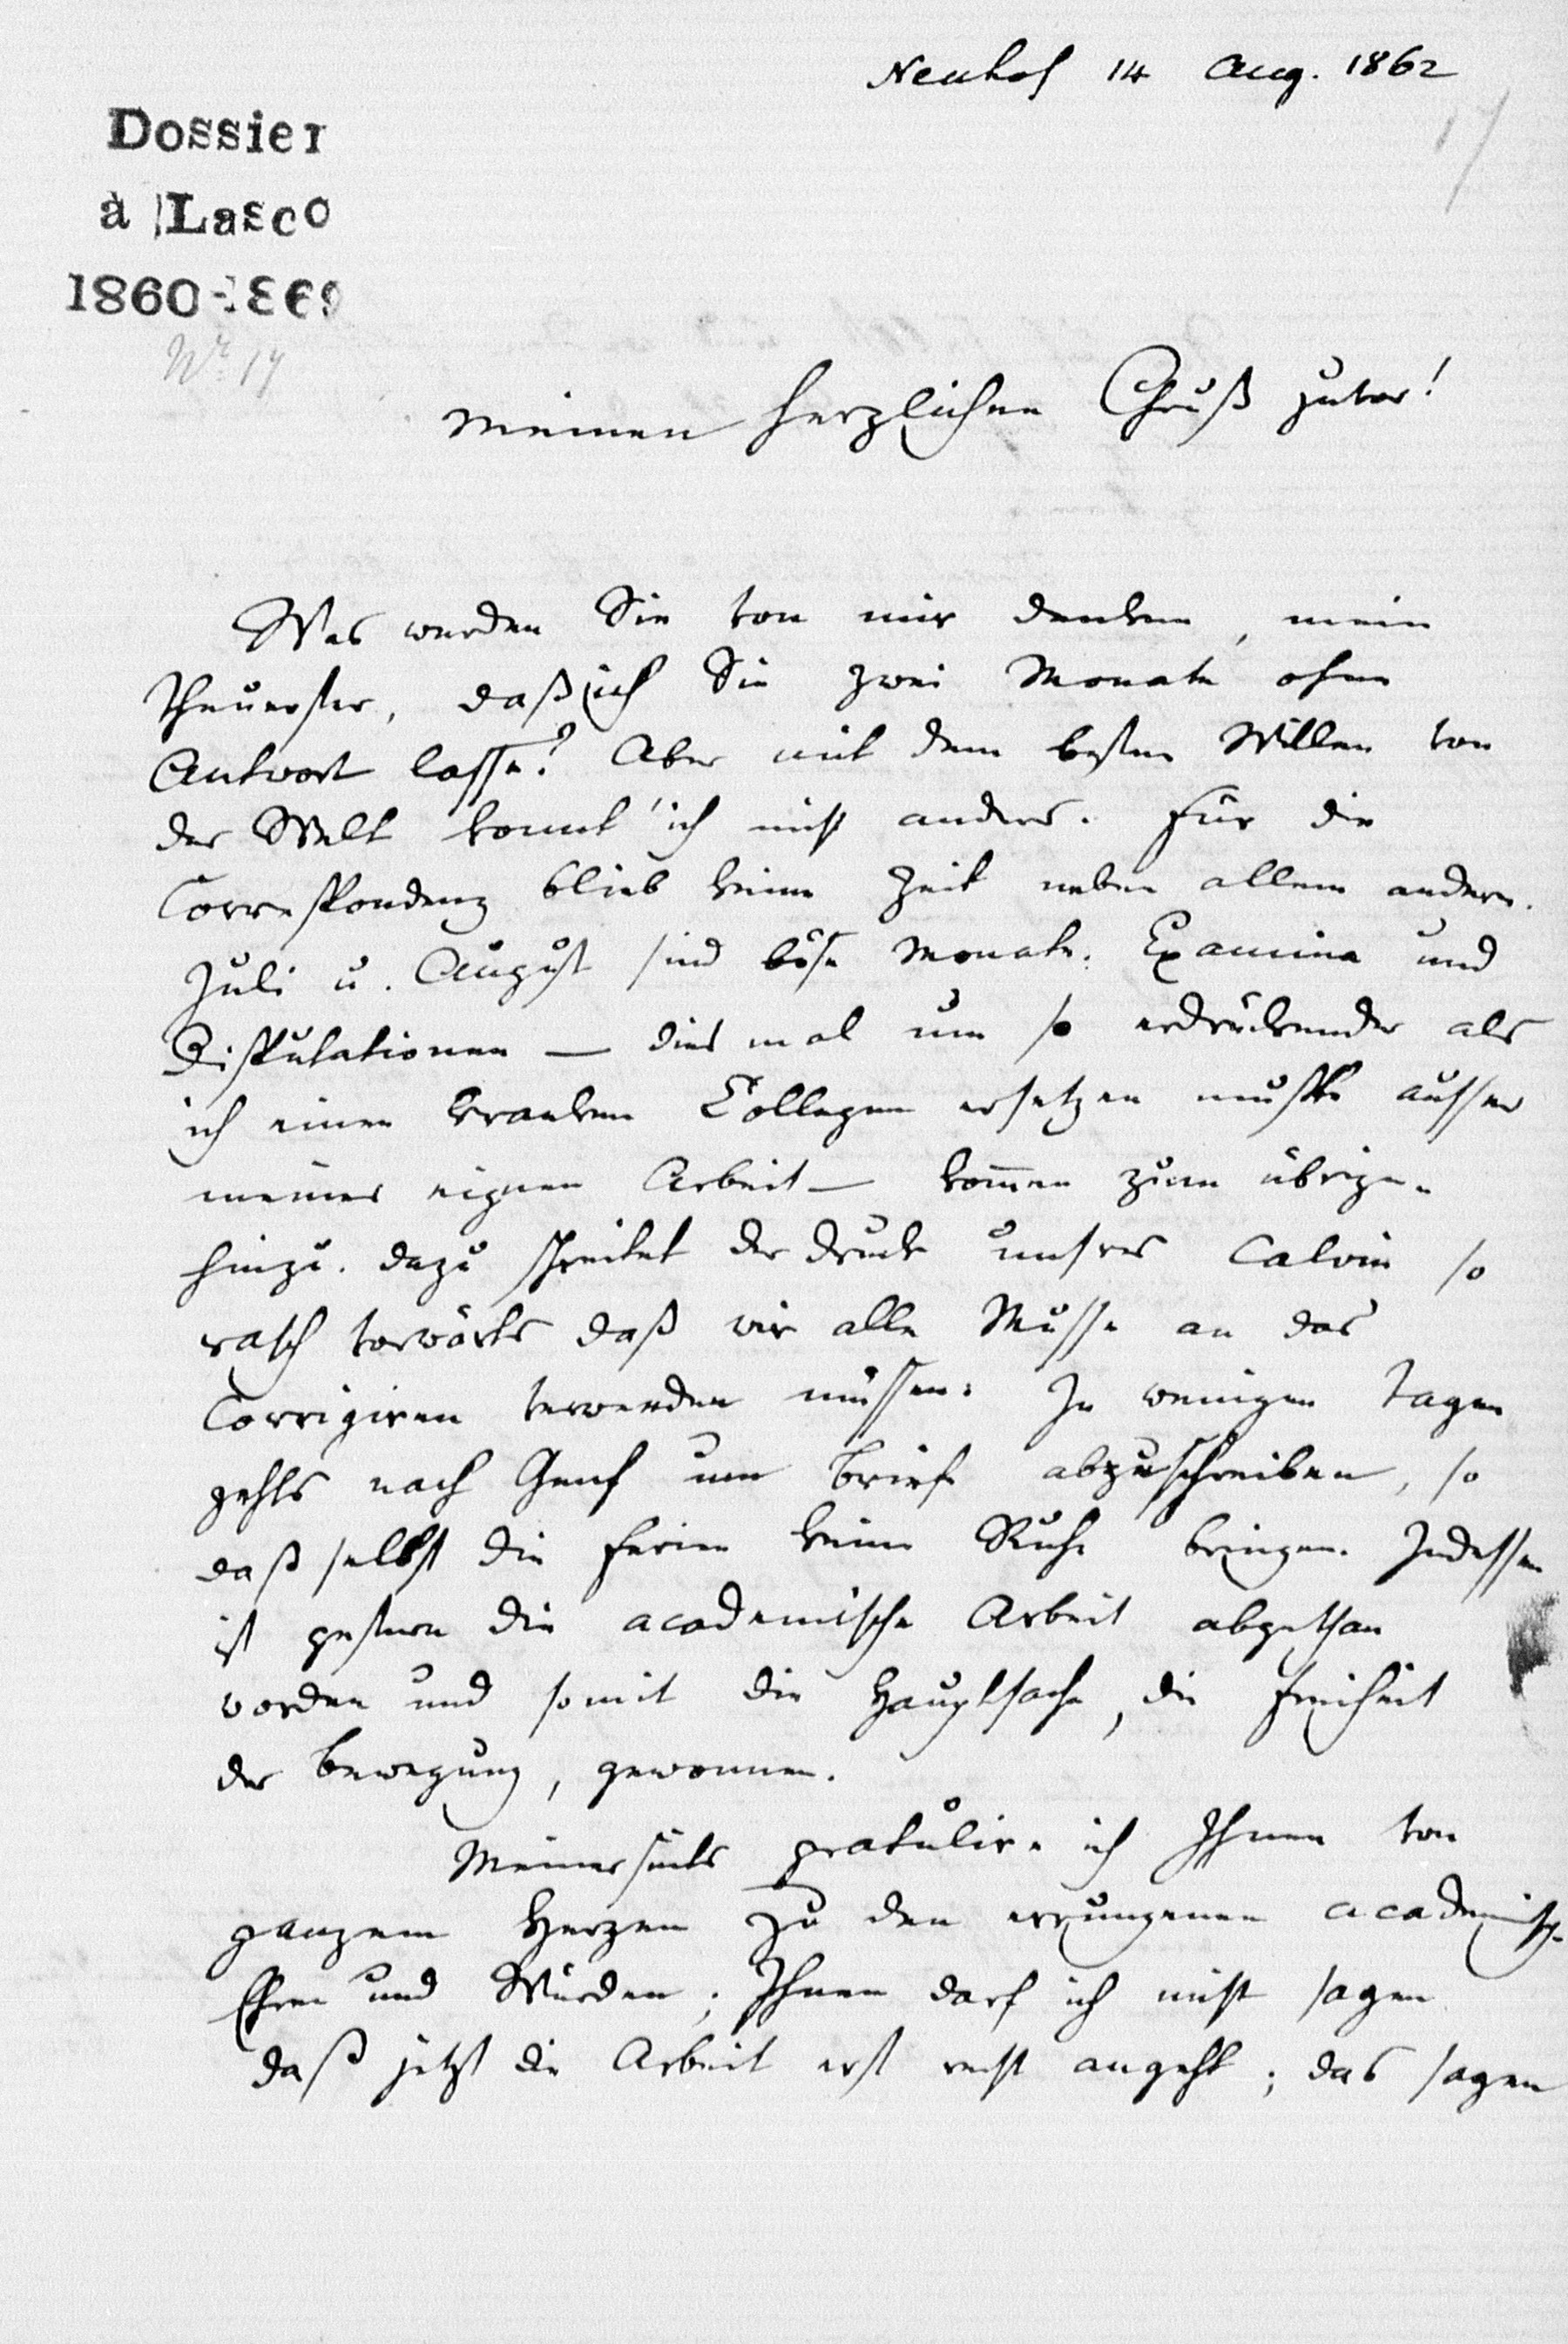 Neuhof 14 Aug. 1862
17
Dossier
à Lasco
1860-1869
Nr. 17
Meinen herzlichen Gruß zuvor!
Was werden Sie von mir denken, mein
Theuerster, daß ich Sie zwei Monate ohne
Antwort lasse? Aber mit dem besten Willen von
der Welt konnt' ich nicht anders. Für die
Correspondenz blieb keine Zeit neben allem andern.
Juli u. August sind böse Monate. Examina und
Disputationen — dies mal um so erdrückender als
ich einen kranken Collegen ersetzen mußte ausser
meiner eignen Arbeit — kommen zum übrigen
hinzu. Dazu schreitet der Druck unsres Calvin so
rasch vorwärts daß wir alle Musse an das
Corrigiren verwenden müssen. In wenigen Tagen
gehts nach Genf um Briefe abzuschreiben, so
daß selbst die Ferien keine Ruhe bringen. Indessen
ist gestern die academische Arbeit abgethan
worden und somit die Hauptsache, die Freiheit
der Bewegung, gewonnen.
Meinerseits gratulire ich Ihnen von
ganzem Herzen zu den errungenen academisch.
Ehren und Würden; Ihnen darf ich nicht sagen
daß jetzt die Arbeit erst recht angeht; das sagen